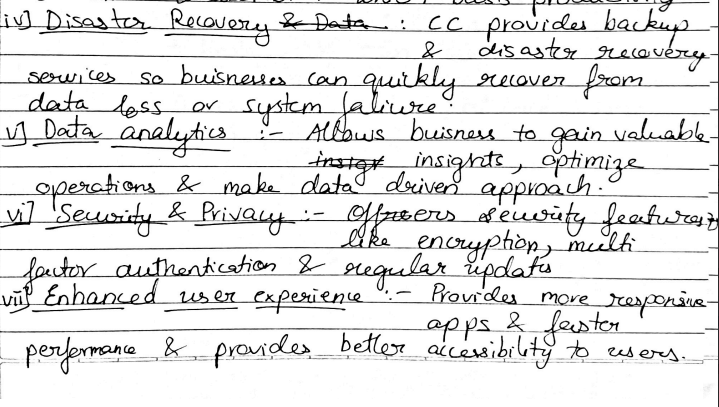 iv] Disaster Recovery & Data : CC provides backup
& disaster recovery
services so buisnesses can quirkly recover from
data loss or system faliure.
v] Data analytics :- Allows buisness to gain valuable
insigr insights, optimize
operations & make data driven approach.
vi] Security & Privacy :- Offreers security features
like encryption, multi
factor authentication & regular updats
vii] Enhanced user experience :- Provides more responsive
apps & faster
performance & provides better accessibility to users.